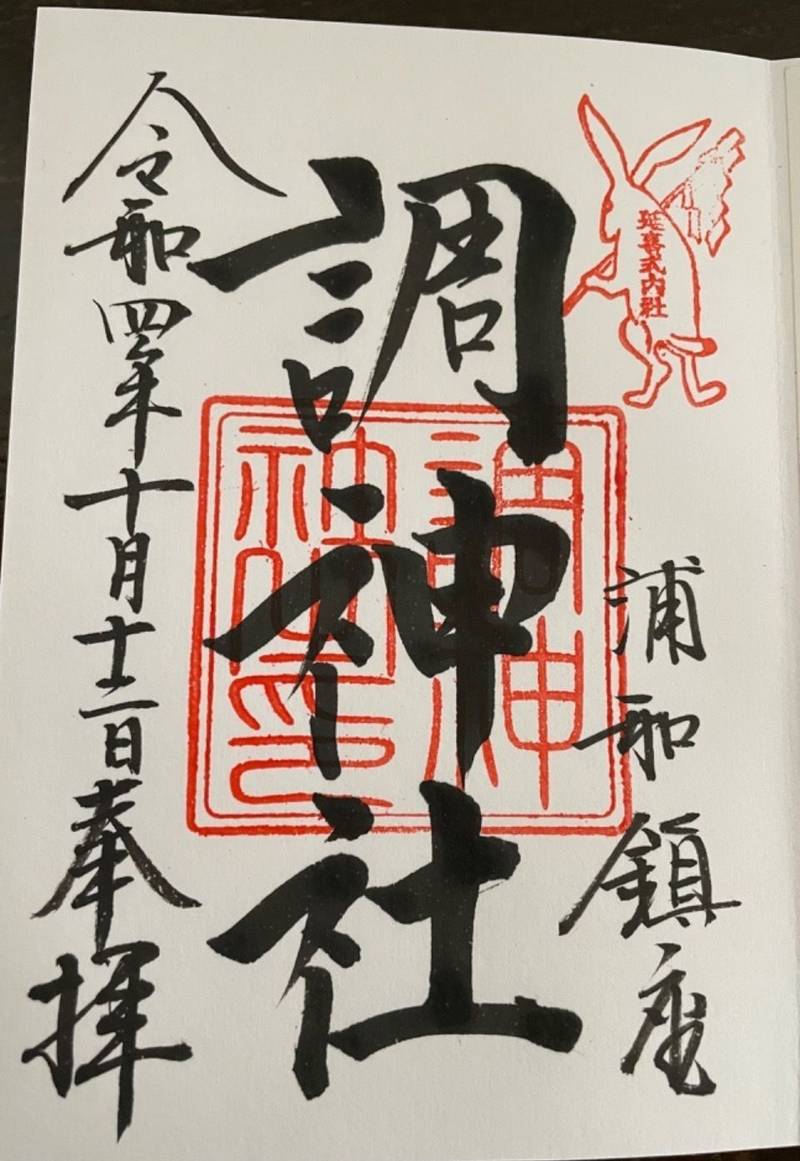 延喜式内社
浦和鎮座
調神社
調神
社之印
令和四年十月十三日奉拝